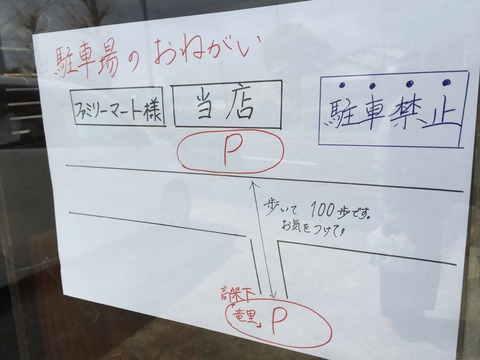 駐車場のおねがい
ファミリーマート様
当店
駐車禁止
P
歩いて 100歩です。
お気をつけて!
「竜里」
P